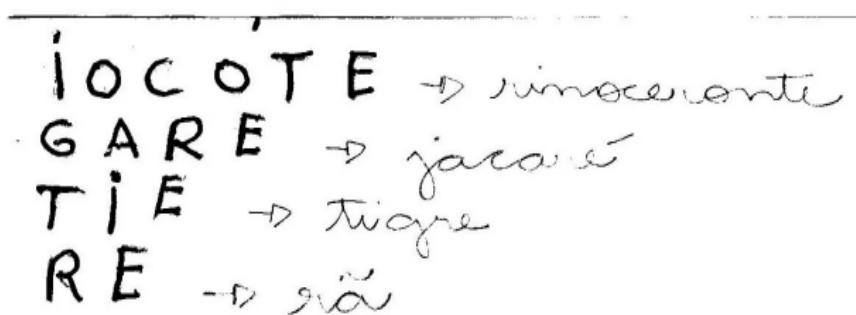 iOCÓTE → rinoceronte
GARE → jacaré
TiE → tigre
RE → rã